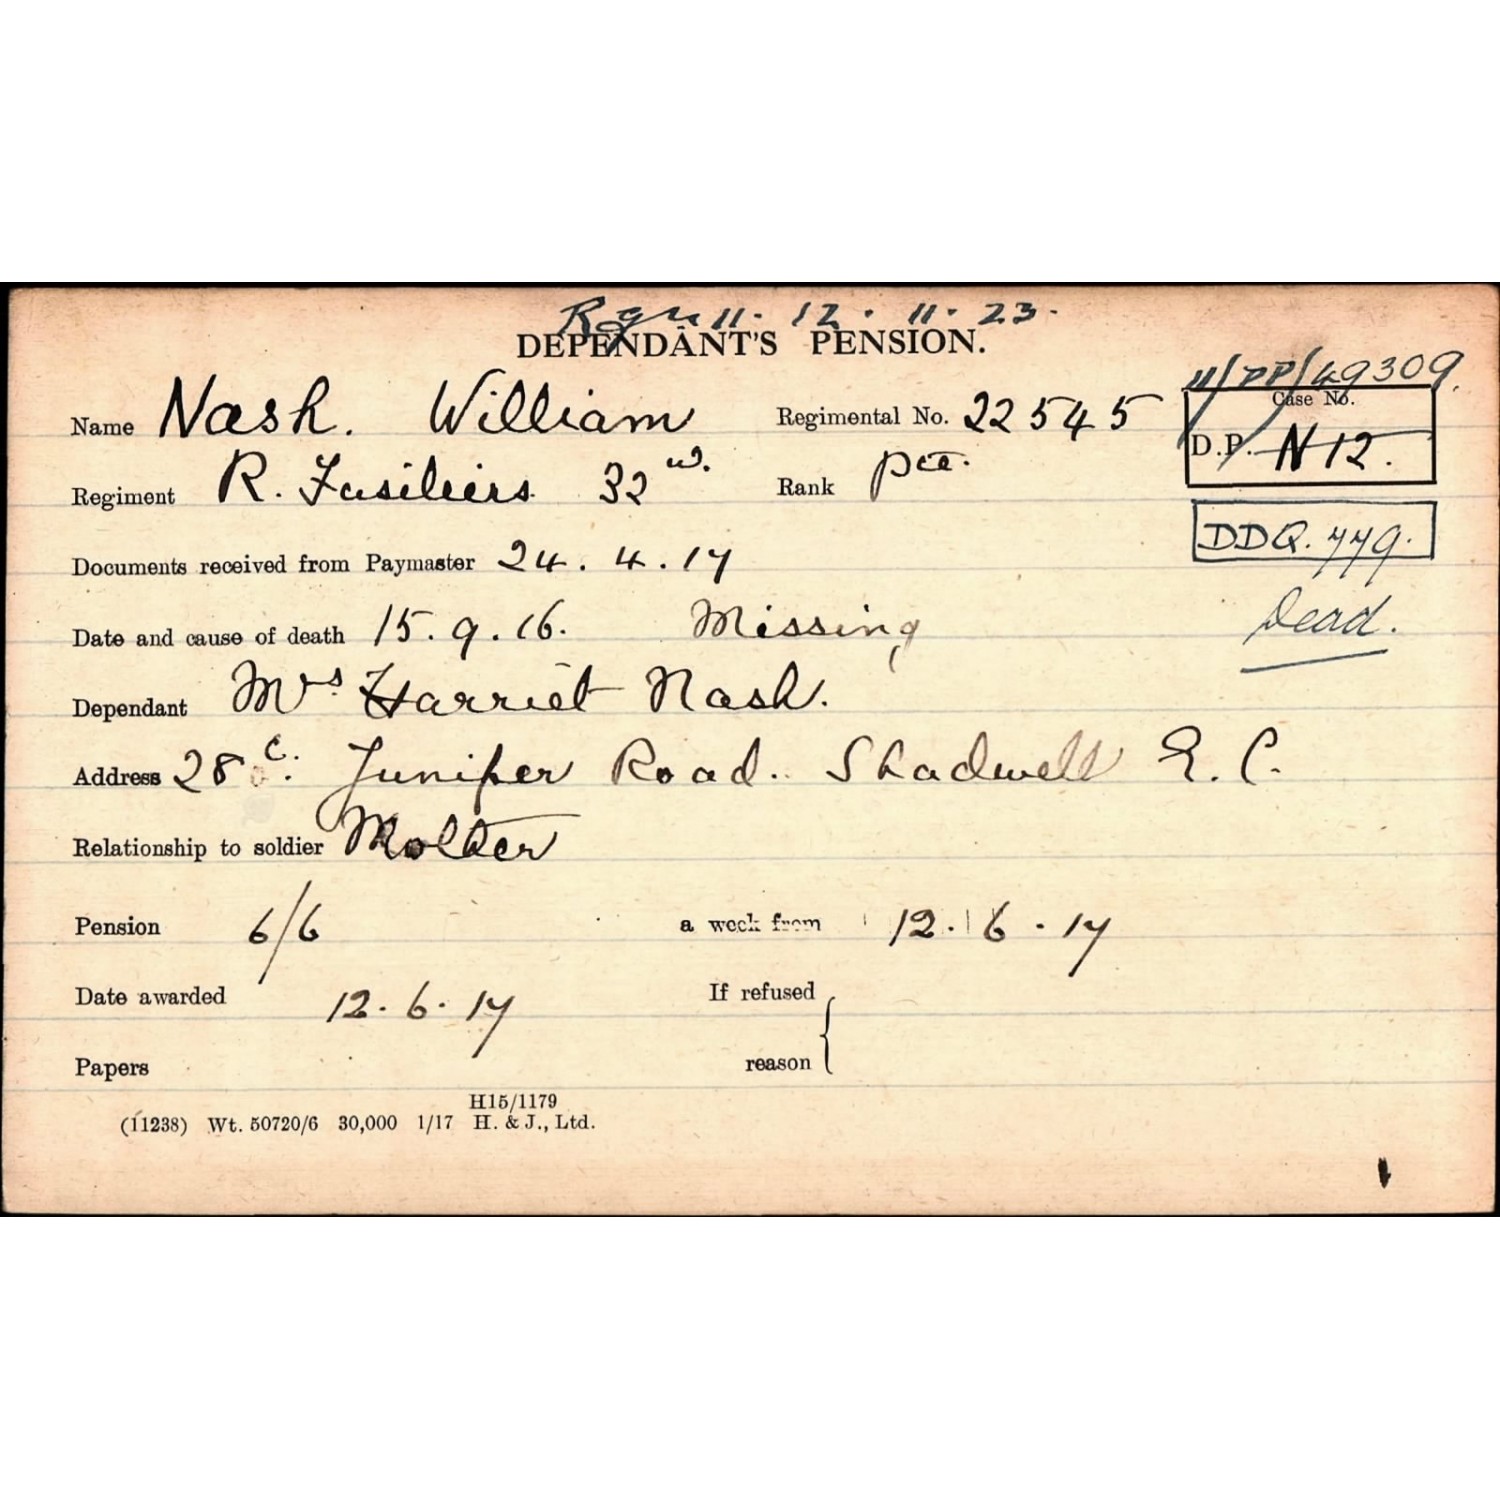 12 . 11 . 23.
DEPENDANT'S PENSION.
11/DP/49309.
Case No.
Name Nash. William Regimental No. 22545
D.P. N 12.
Regiment R. Fusiliers 32 Rank Pte.
DDQ. 779.
Documents received from Paymaster 24 . 4 . 17
Dead.
Date and cause of death 15 . 9 . 16. Missing
Dependant Mrs Harriet Nash.
Address 28 c. Juniper Road. Shadwell E. C.
Relationship to soldier Mother
Pension 6/6 a week from 12 . 6 . 17
Date awarded 12 . 6 . 17 If refused
Papers reason
H15/1179
(11238) Wt. 50720/6 30,000 1/17 H. & J., Ltd.